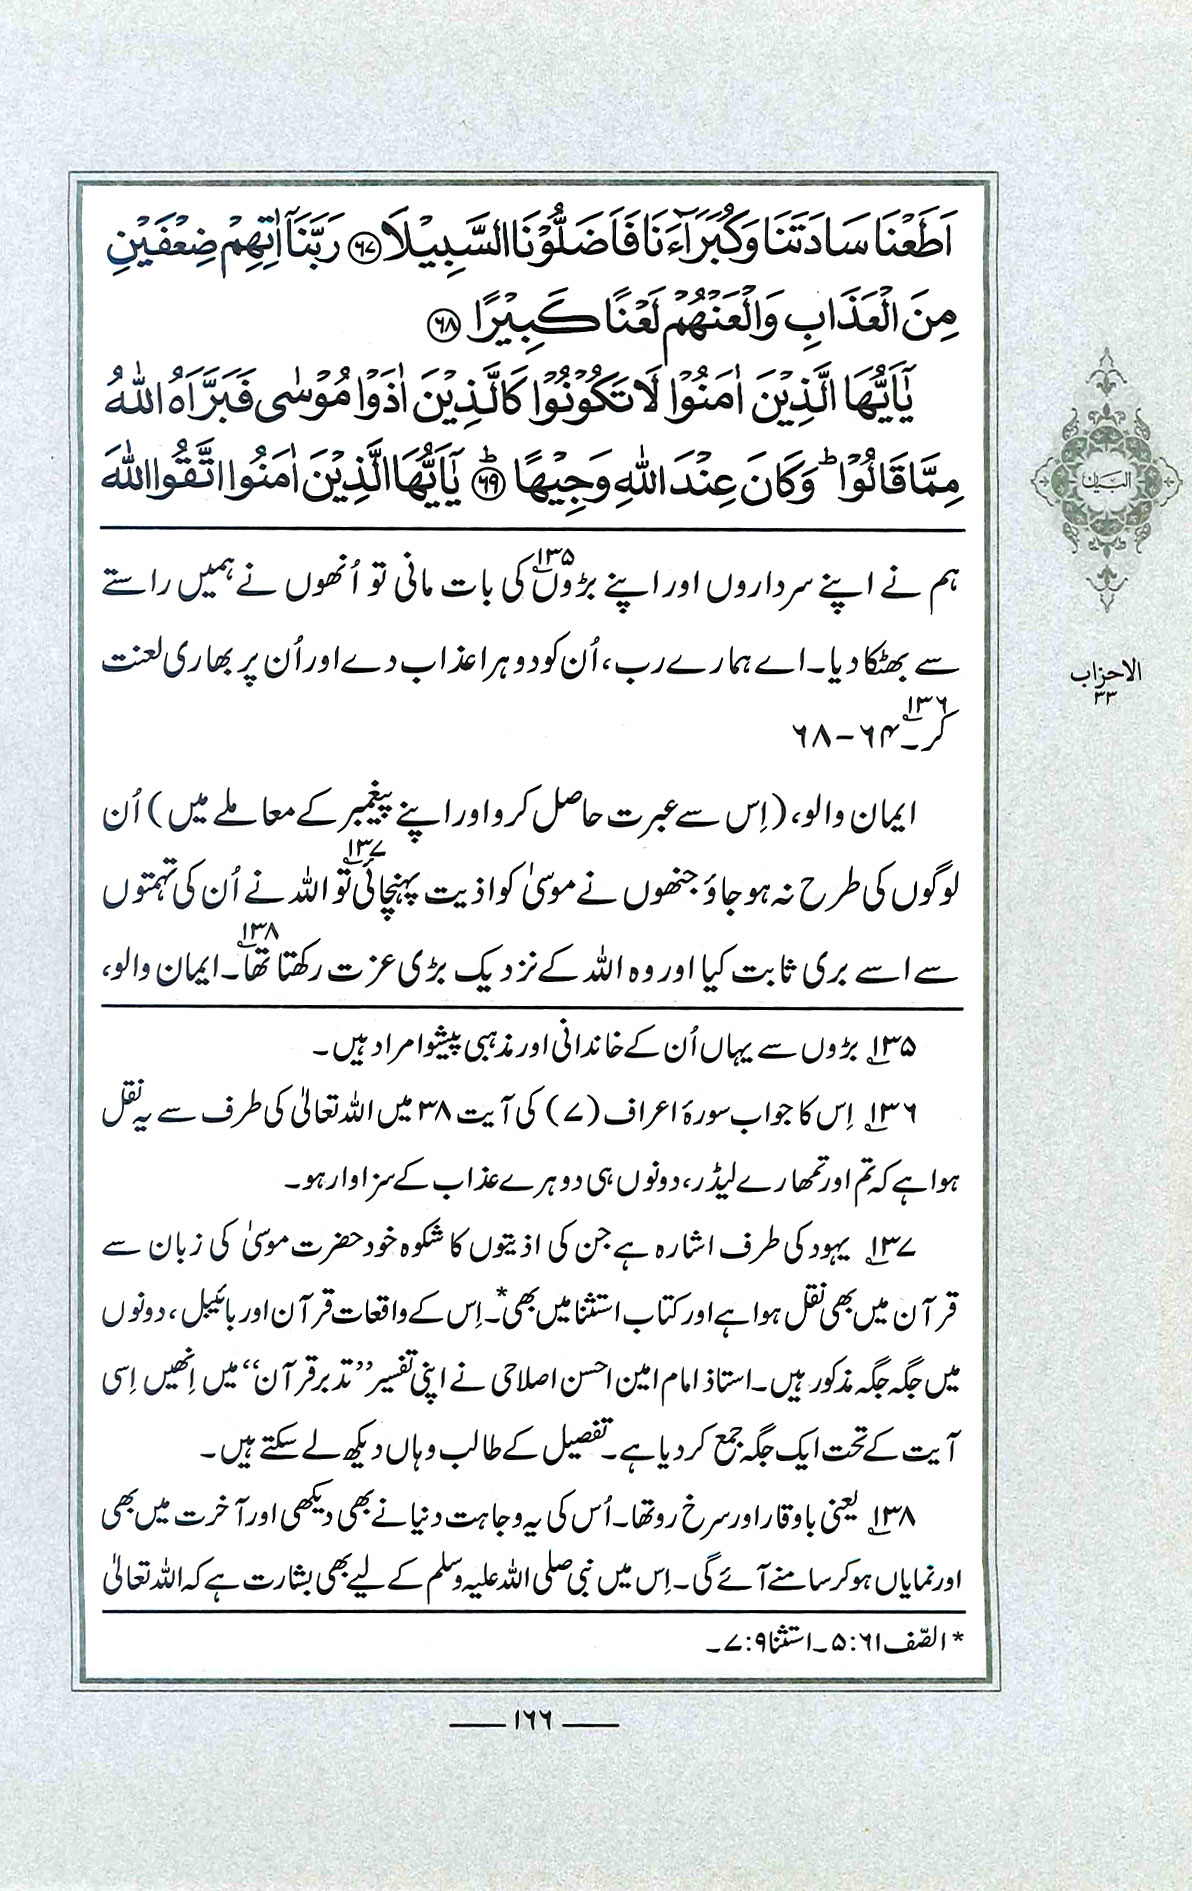 اَطَعْنَا سَادَتَنَا وَكُبَرَآءَنَا فَاَضَلُّوْنَا السَّبِيْلَا ﴿۶۷﴾ رَبَّنَآ اٰتِهِمْ ضِعْفَيْنِ
مِنَ الْعَذَابِ وَالْعَنْهُمْ لَعْنًا كَبِيْرًا ﴿۶۸﴾
يٰٓاَيُّهَا الَّذِيْنَ اٰمَنُوْا لَا تَكُوْنُوْا كَالَّذِيْنَ اٰذَوْا مُوْسٰى فَبَرَّاَهُ اللّٰهُ
مِمَّا قَالُوْا ؕ وَكَانَ عِنْدَ اللّٰهِ وَجِيْهًا ﴿ؕ۶۹﴾ يٰٓاَيُّهَا الَّذِيْنَ اٰمَنُوا اتَّقُوا اللّٰهَ
البیان
الاحزاب
۳۳
ہم نے اپنے سرداروں اور اپنے بڑوں۱۳۵ کی بات مانی تو اُنھوں نے ہمیں راستے
سے بھٹکا دیا۔ اے ہمارے رب، اُن کو دوہرا عذاب دے اور اُن پر بھاری لعنت
کر۔۱۳۶ ۶۴-۶۸
ایمان والو، (اِس سے عبرت حاصل کرو اور اپنے پیغمبر کے معاملے میں) اُن
لوگوں کی طرح نہ ہو جاؤ جنھوں نے موسیٰ کو اذیت پہنچائی۱۳۷ تو اللہ نے اُن کی تہمتوں
سے اسے بری ثابت کیا اور وہ اللہ کے نزدیک بڑی عزت رکھتا تھا۱۳۸۔ ایمان والو،
۱۳۵؂ بڑوں سے یہاں اُن کے خاندانی اور مذہبی پیشوا مراد ہیں۔
۱۳۶؂ اِس کا جواب سورۂ اعراف (۷) کی آیت ۳۸ میں اللہ تعالیٰ کی طرف سے یہ نقل
ہوا ہے کہ تم اور تمھارے لیڈر، دونوں ہی دوہرے عذاب کے سزاوار ہو۔
۱۳۷؂ یہود کی طرف اشارہ ہے جن کی اذیتوں کا شکوہ خود حضرت موسیٰ کی زبان سے
قرآن میں بھی نقل ہوا ہے اور کتاب استثنا میں بھی*۔ اِس کے واقعات قرآن اور بائیبل، دونوں
میں جگہ جگہ مذکور ہیں۔ استاذ امام امین احسن اصلاحی نے اپنی تفسیر ’’تدبر قرآن‘‘ میں اِنھیں اِسی
آیت کے تحت ایک جگہ جمع کر دیا ہے۔ تفصیل کے طالب وہاں دیکھ لے سکتے ہیں۔
۱۳۸؂ یعنی باوقار اور سرخ رو تھا۔ اُس کی یہ وجاہت دنیا نے بھی دیکھی اور آخرت میں بھی
اور نمایاں ہو کر سامنے آئے گی۔ اِس میں نبی صلی اللہ علیہ وسلم کے لیے بھی بشارت ہے کہ اللہ تعالیٰ
* الصّف ۶۱: ۵۔ استثنا ۹: ۷۔
۱۶۶